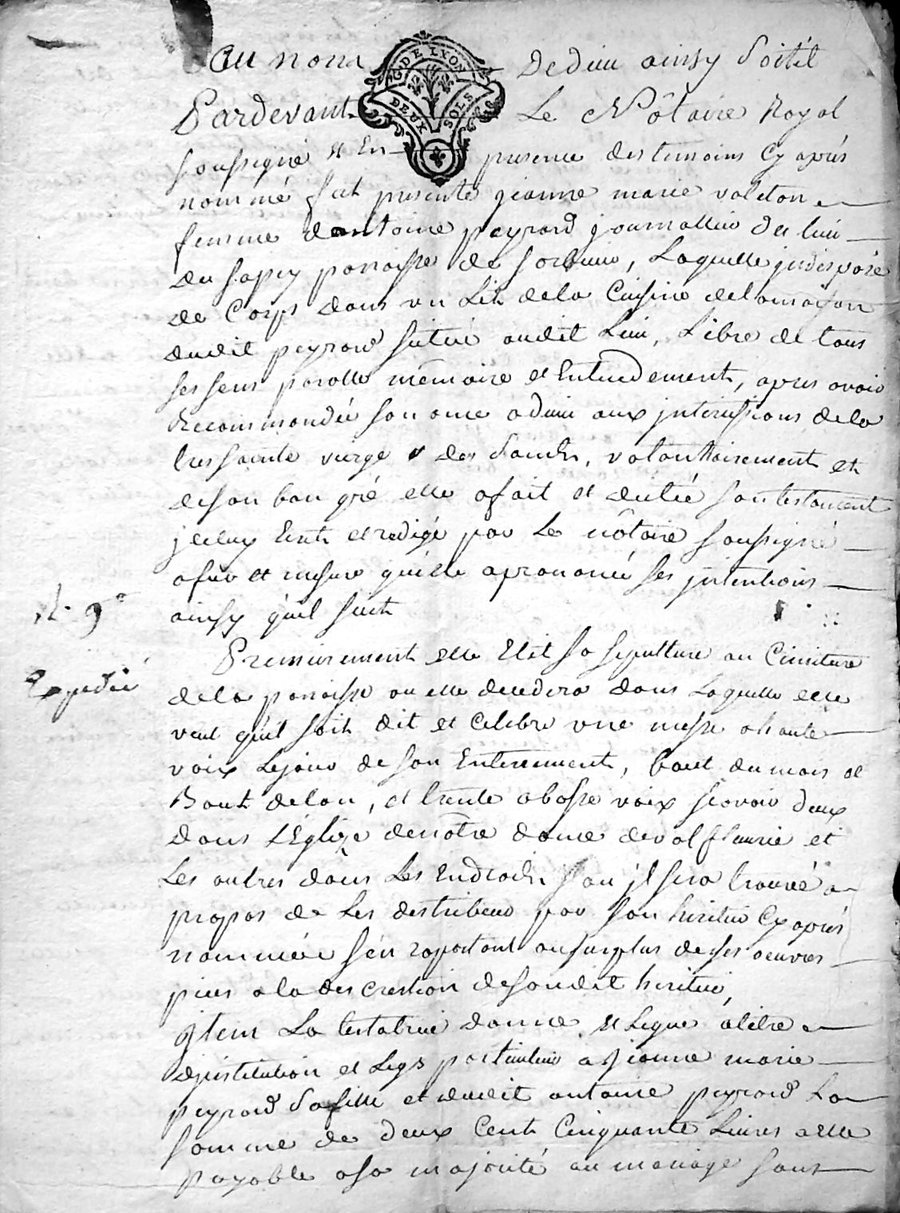 Au nom De dieu ainsy Soitil
G. DE LYON
DEUX SOLS
Pardevant Le Nôtaire Royal
soussigné et En presence des temoins Cy après
nommé fut presente jeanne marie valeton
femme dantoine peyrard journallier du lieu
du sapey parroisse de sorbier, Laquelle indisposé
de Corps dans un Lit de la Cuisine de la maison
dudit peyrard sitúé audit Lieu, Libre de tous
ses sens parolle mémoire et Entendement, apres avoir
Recommandée son ame a dieu aux intercessions de la
tres sainte vierge & des Saints, volontairement et
de son bon gré elle a fait et dictée son testament
jceluy Ecrit et redigé par Le nôtaire soussigné
a fur et mesure qu'elle a prononcée ses jntentions
ainsy qu'il suit
N. 9e
Premierement elle Elit sa sepulture au Cimitiere
Expedié
de la parroisse ou elle decedera dans Laquelle elle
veut qu'il soit dit et Celebre une messe a haute
voix Lejour de son Enterrement, bout du mois et
Bout de lan, et trente a basse voix scavoir deux
dans L'Eglize de nôtre dame de valfleurie et
Les autres dans Les Endroits ou jl sera trouvé a
propos de Les destribuer par son heritier Cy après
nommée s'en raportant au surplus de ses oeuvres
pies a la descrestion de son dit heritier,
jtem La testatrice donne et Legue a titre
d'jnstitution et Legs particulier a jeanne marie
peyrard Sa fille et dudit antoine peyrard La
somme de deux Cent Cinquante Livres a elle
payable a sa majorité au mariage sans